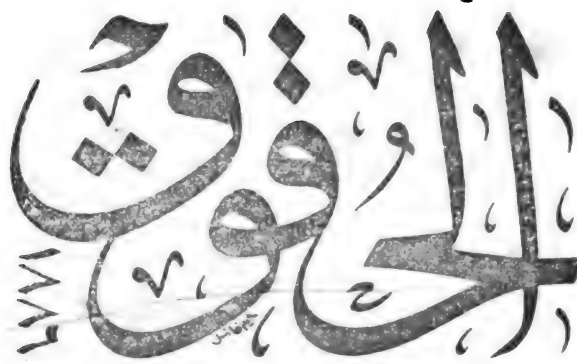 الحُقوق